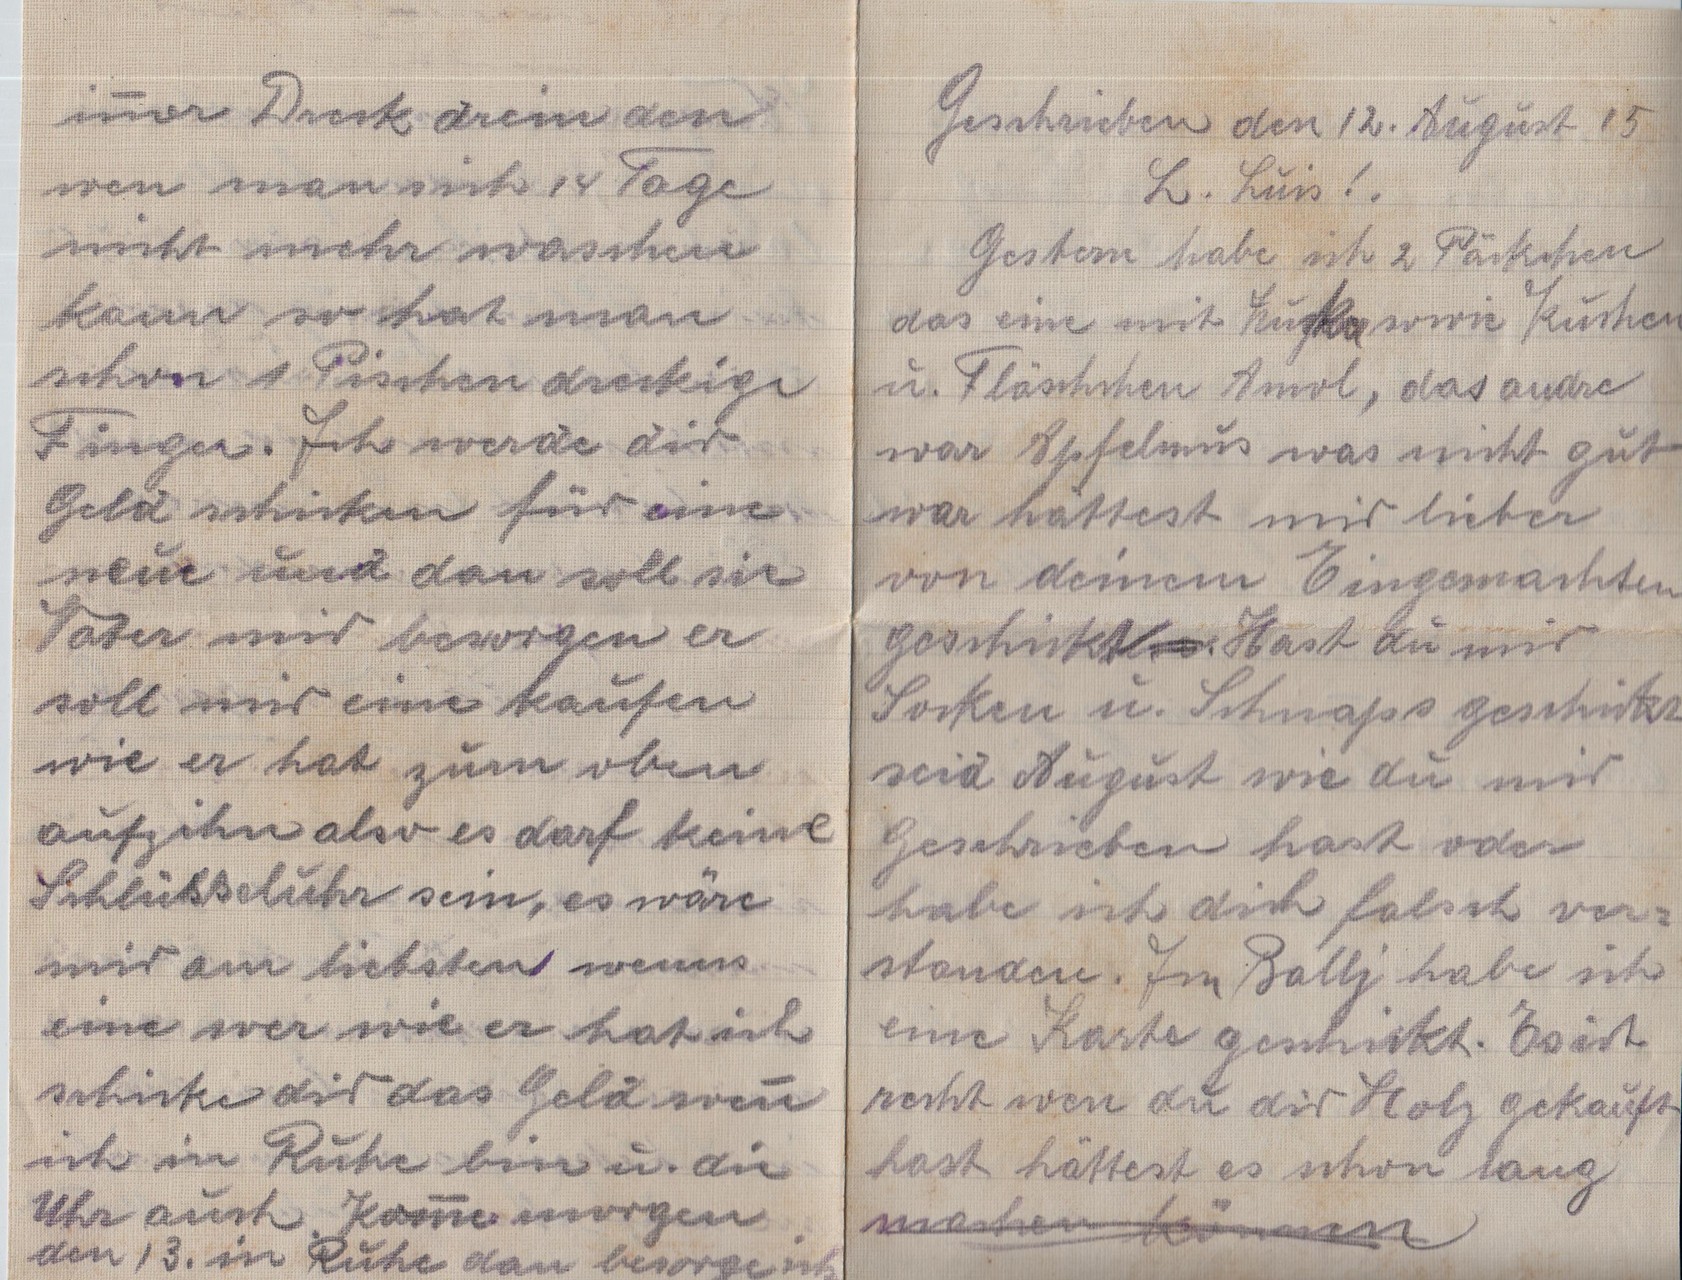 im̅er Dreck drein den
wen man sich 14 Tage
nicht mehr waschen
kann so hat man
schon 1 Pischen dreckige
Finger. Ich werde dir
Geld schicken für eine
neue und dan soll sie
Vater mir besorgen er
soll mir eine kaufen
wie er hat zum oben
aufzihn also es darf keine
Schlüsseluhr sein, es wäre
mir am liebsten wenns
eine wer wie er hat ich
schicke dir das Geld wen̅
ich in Ruhe bin u. die
Uhr auch. Kom̅e morgen
den 13. in Ruhe dan besorge ich
Geschrieben den 12. August 15
L. Luis!.
Gestern habe ich 2 Päckchen
das eine mit sowie Kuchen
u. Fläschchen Amol, das andre
war Apfelmus was nicht gut
war hättest mir lieber
von deinem Eingemachten
geschickt. Hast du mir
Socken u. Schnaps geschickt
seid August wie du mir
Geschrieben hast oder
habe ich dich falsch ver=
standen. Im Ballj habe ich
eine Karte geschickt. Es ist
recht wen du dir Holz gekauft
hast hättest es schon lang
machen können